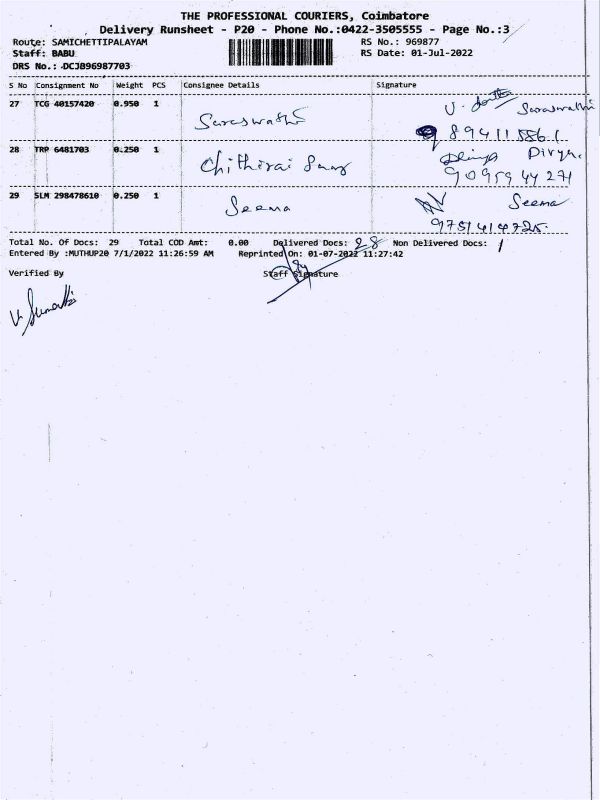 THE PROFESSIONAL COURIERS, Coimbatore
Delivery Runsheet - P20 - Phone No.:0422-3505555 - Page No.:3
Route: SAMICHETTIPALAYAM RS No.: 969877
Staff: BABU RS Date: 01-Jul-2022
DRS No.: DCJB96987703
S No Consignment No Weight PCS Consignee Details Signature
27 TCG 40157420 0.950 1 Saraswathi Saraswathi
28 TRP 6481703 0.250 1 Chithirai Divya.
90959 44 271
29 SLM 298478610 0.250 1 Seema Seema
Total No. Of Docs: 29 Total COD Amt: 0.00 Delivered Docs: 28 Non Delivered Docs: 1
Entered By :MUTHUP20 7/1/2022 11:26:59 AM Reprinted On: 01-07-2022 11:27:42
Verified By Staff Signature